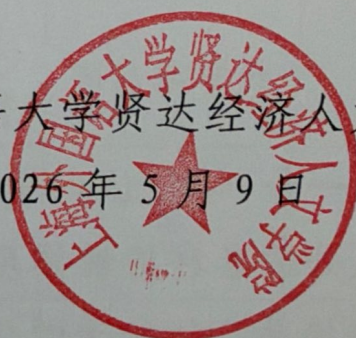 上海外国语大学贤达经济人文学院
大学贤达经济人
026 年 5 月 9 日